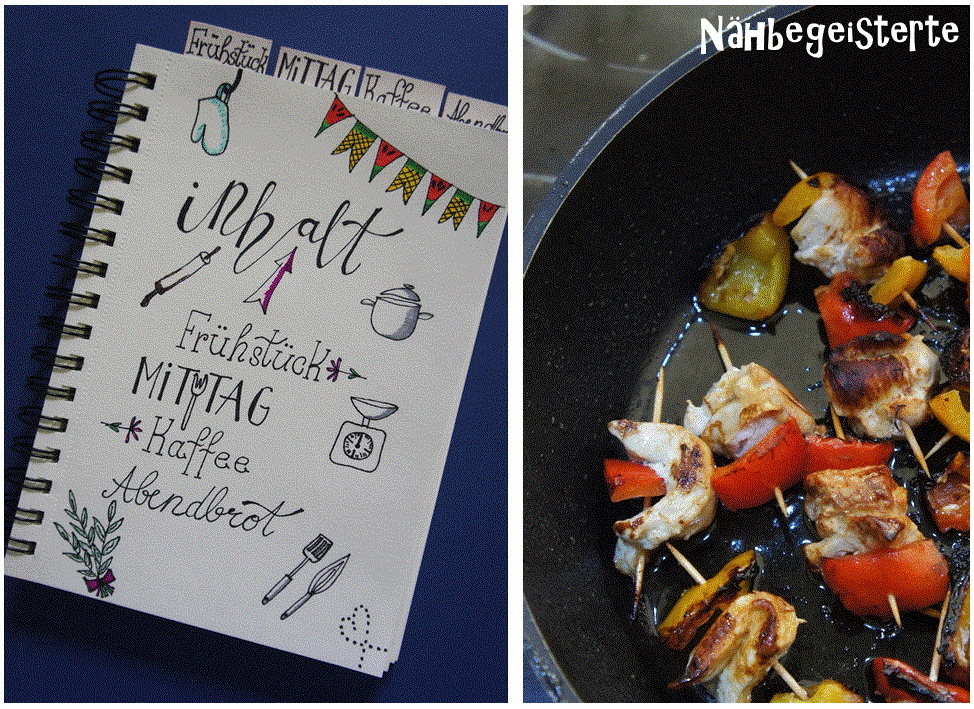 Frühstück
MITTAG
Kaffee
Abendb
inhalt
Frühstück
MITTAG
Kaffee
Abendbrot
Nähbegeisterte